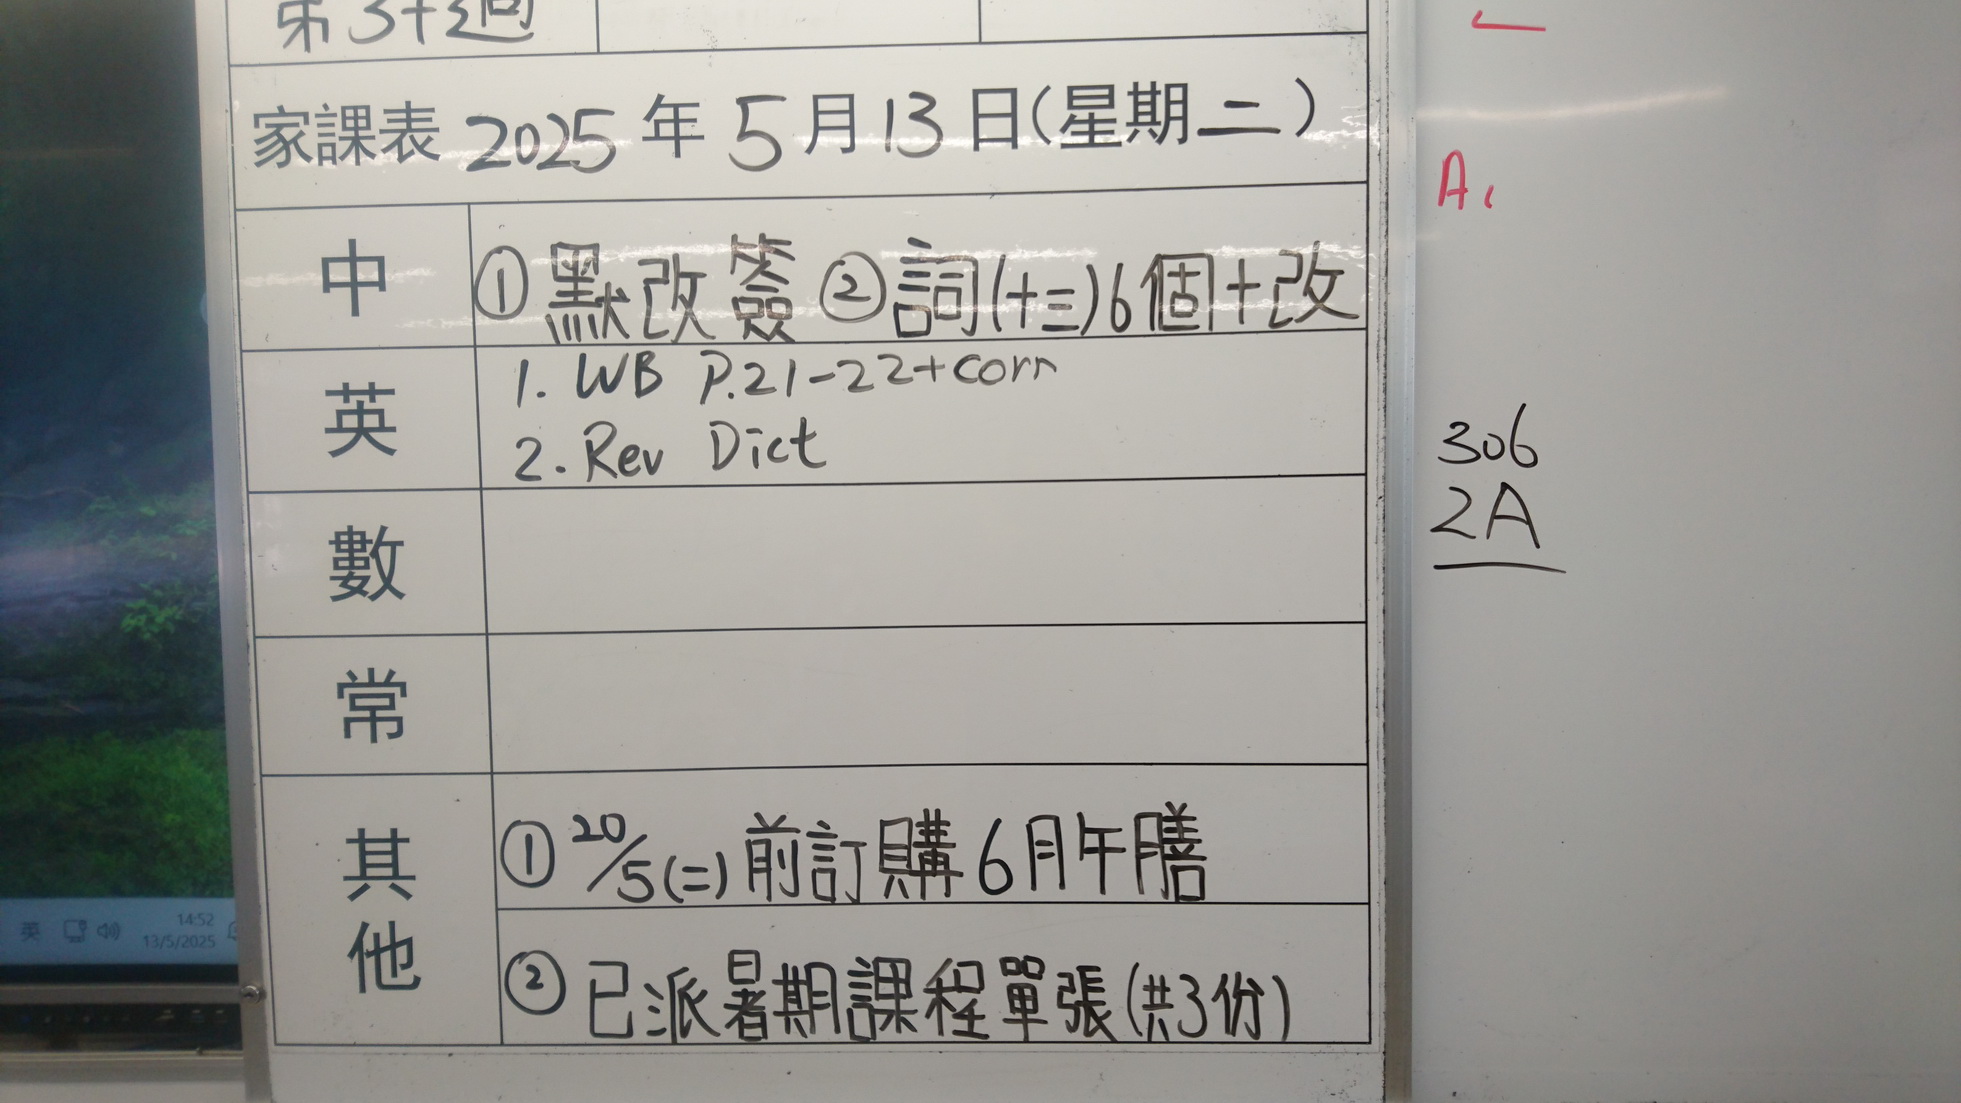 家課表 2025 年 5 月 13 日(星期二)
中 ① 默改簽 ② 詞(十三)6個+改
英 1. WB P.21-22+corr
2. Rev Dict
數
常
其他 ① 20/5(二)前訂購6月午膳
② 已派暑期課程單張(共3份)
A
306
2A
英 14:52
13/5/2025